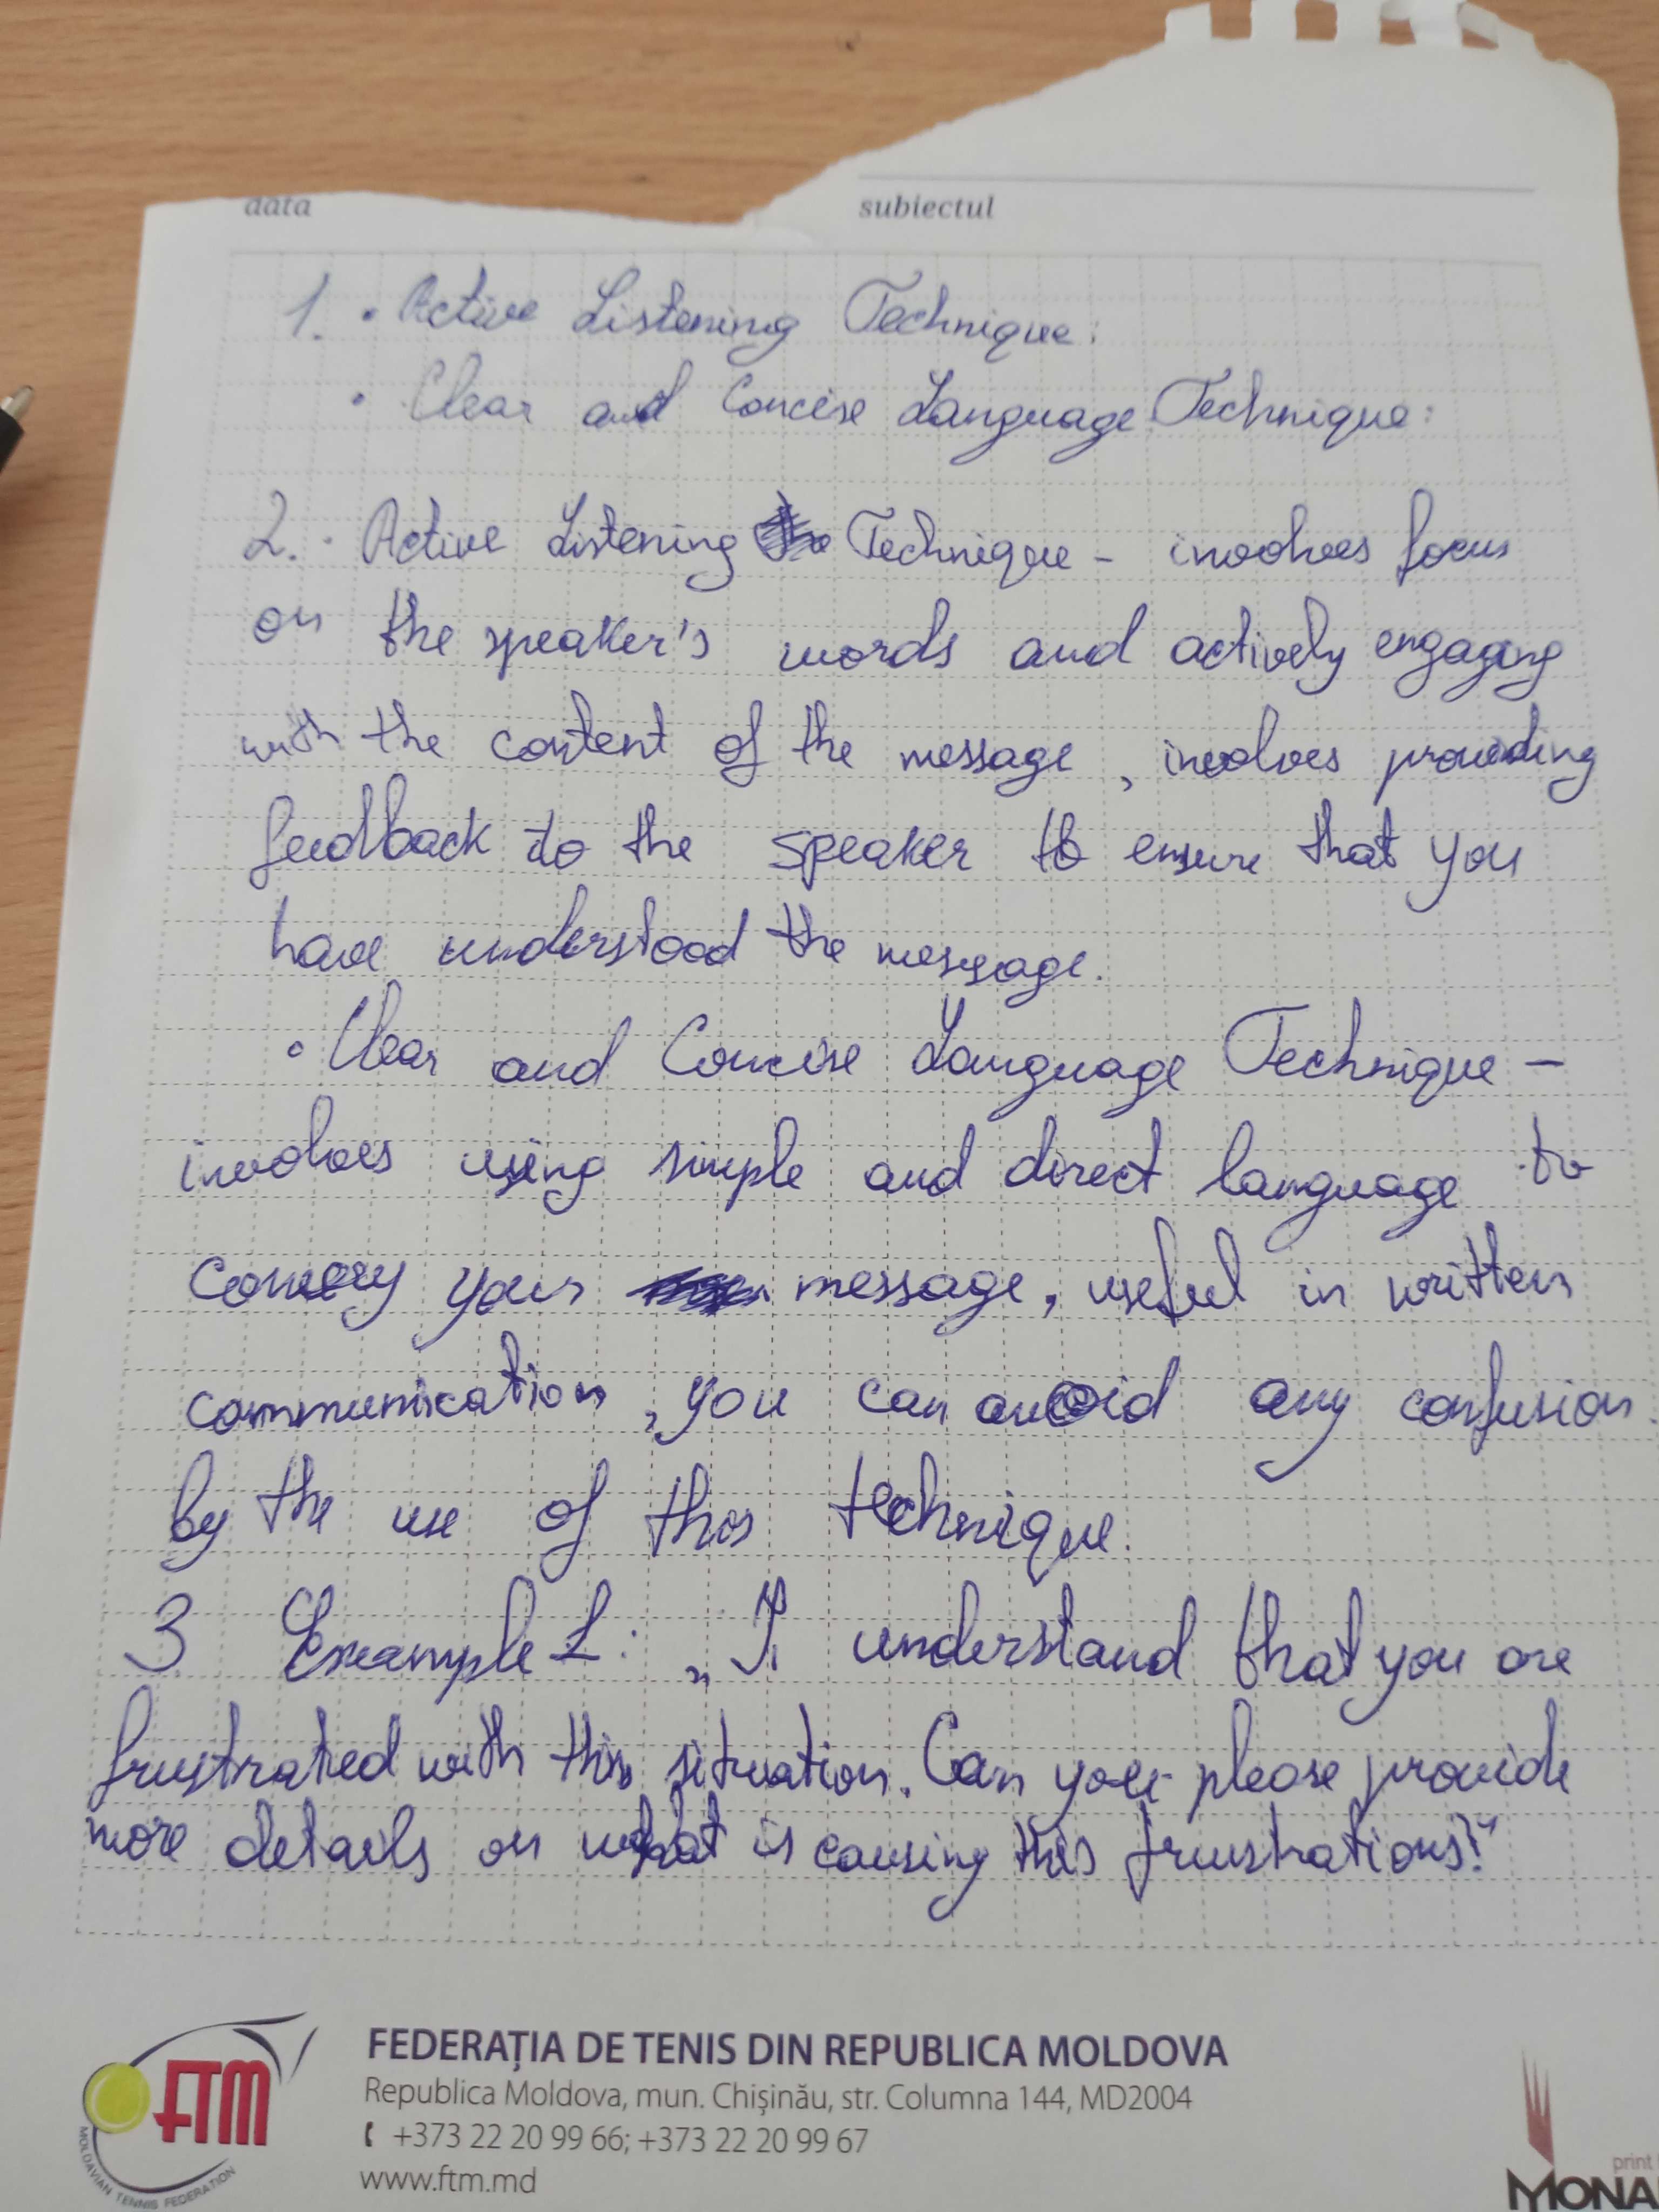 data subiectul
1. • Active Listening Technique:
• Clear and Concise Language Technique:
2. • Active Listening Technique - involves focus
on the speaker's words and actively engaging
with the content of the message, involves providing
feedback to the speaker to ensure that you
have understood the message.
• Clear and Concise Language Technique -
involves using simple and direct language to
convey your message, useful in written
communication, you can avoid any confusion
by the use of this technique.
3 Example 1: „I understand that you are
frustrated with this situation. Can you please provide
more details on what is causing this frustrations?"
FTM
MOLDAVIAN TENNIS FEDERATION
FEDERAȚIA DE TENIS DIN REPUBLICA MOLDOVA
Republica Moldova, mun. Chișinău, str. Columna 144, MD2004
+373 22 20 99 66; +373 22 20 99 67
www.ftm.md
print
MONA